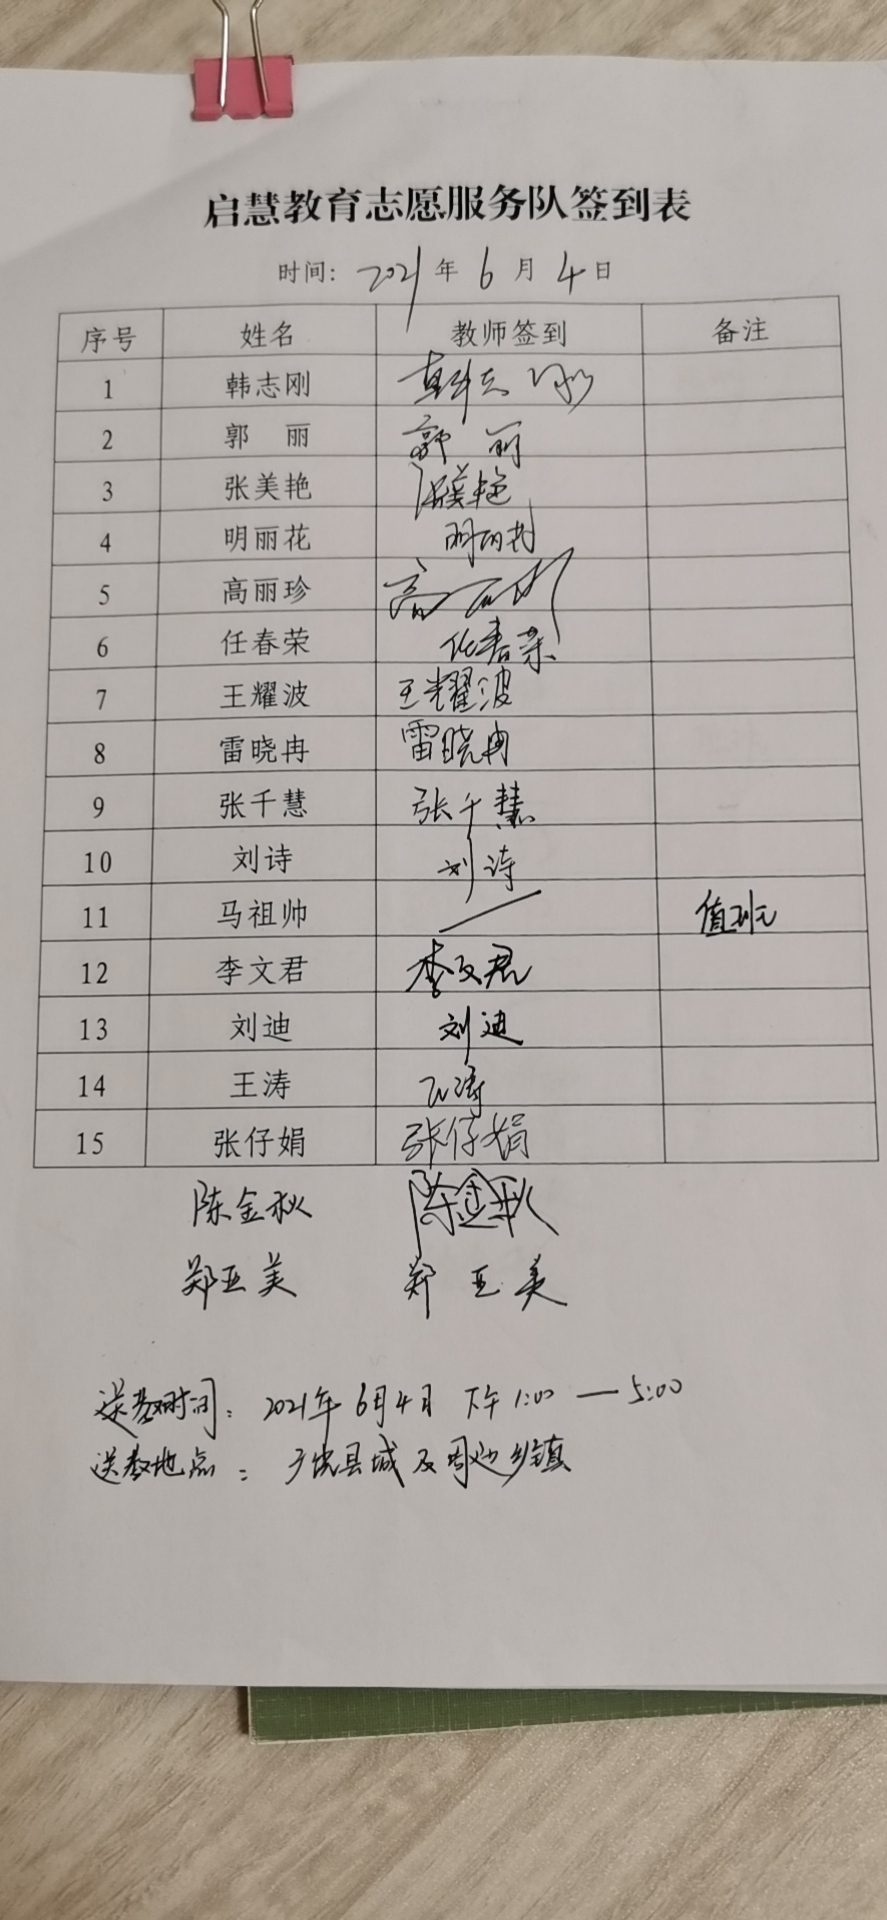 启慧教育志愿服务队签到表
时间: 2021 年 6 月 4 日
序号 姓名 教师签到 备注
1 韩志刚 韩志刚
2 郭 丽 郭 丽
3 张美艳 张美艳
4 明丽花 明丽花
5 高丽珍 高丽珍
6 任春荣 任春荣
7 王耀波 王耀波
8 雷晓冉 雷晓冉
9 张千慧 张千慧
10 刘诗 刘诗
11 马祖帅 / 值班
12 李文君 李文君
13 刘迪 刘迪
14 王涛 王涛
15 张仔娟 张仔娟
陈金秋 陈金秋
郑亚美 郑亚美
送教时间: 2021年6月4日 下午1:00 — 5:00
送教地点: 县城及周边乡镇